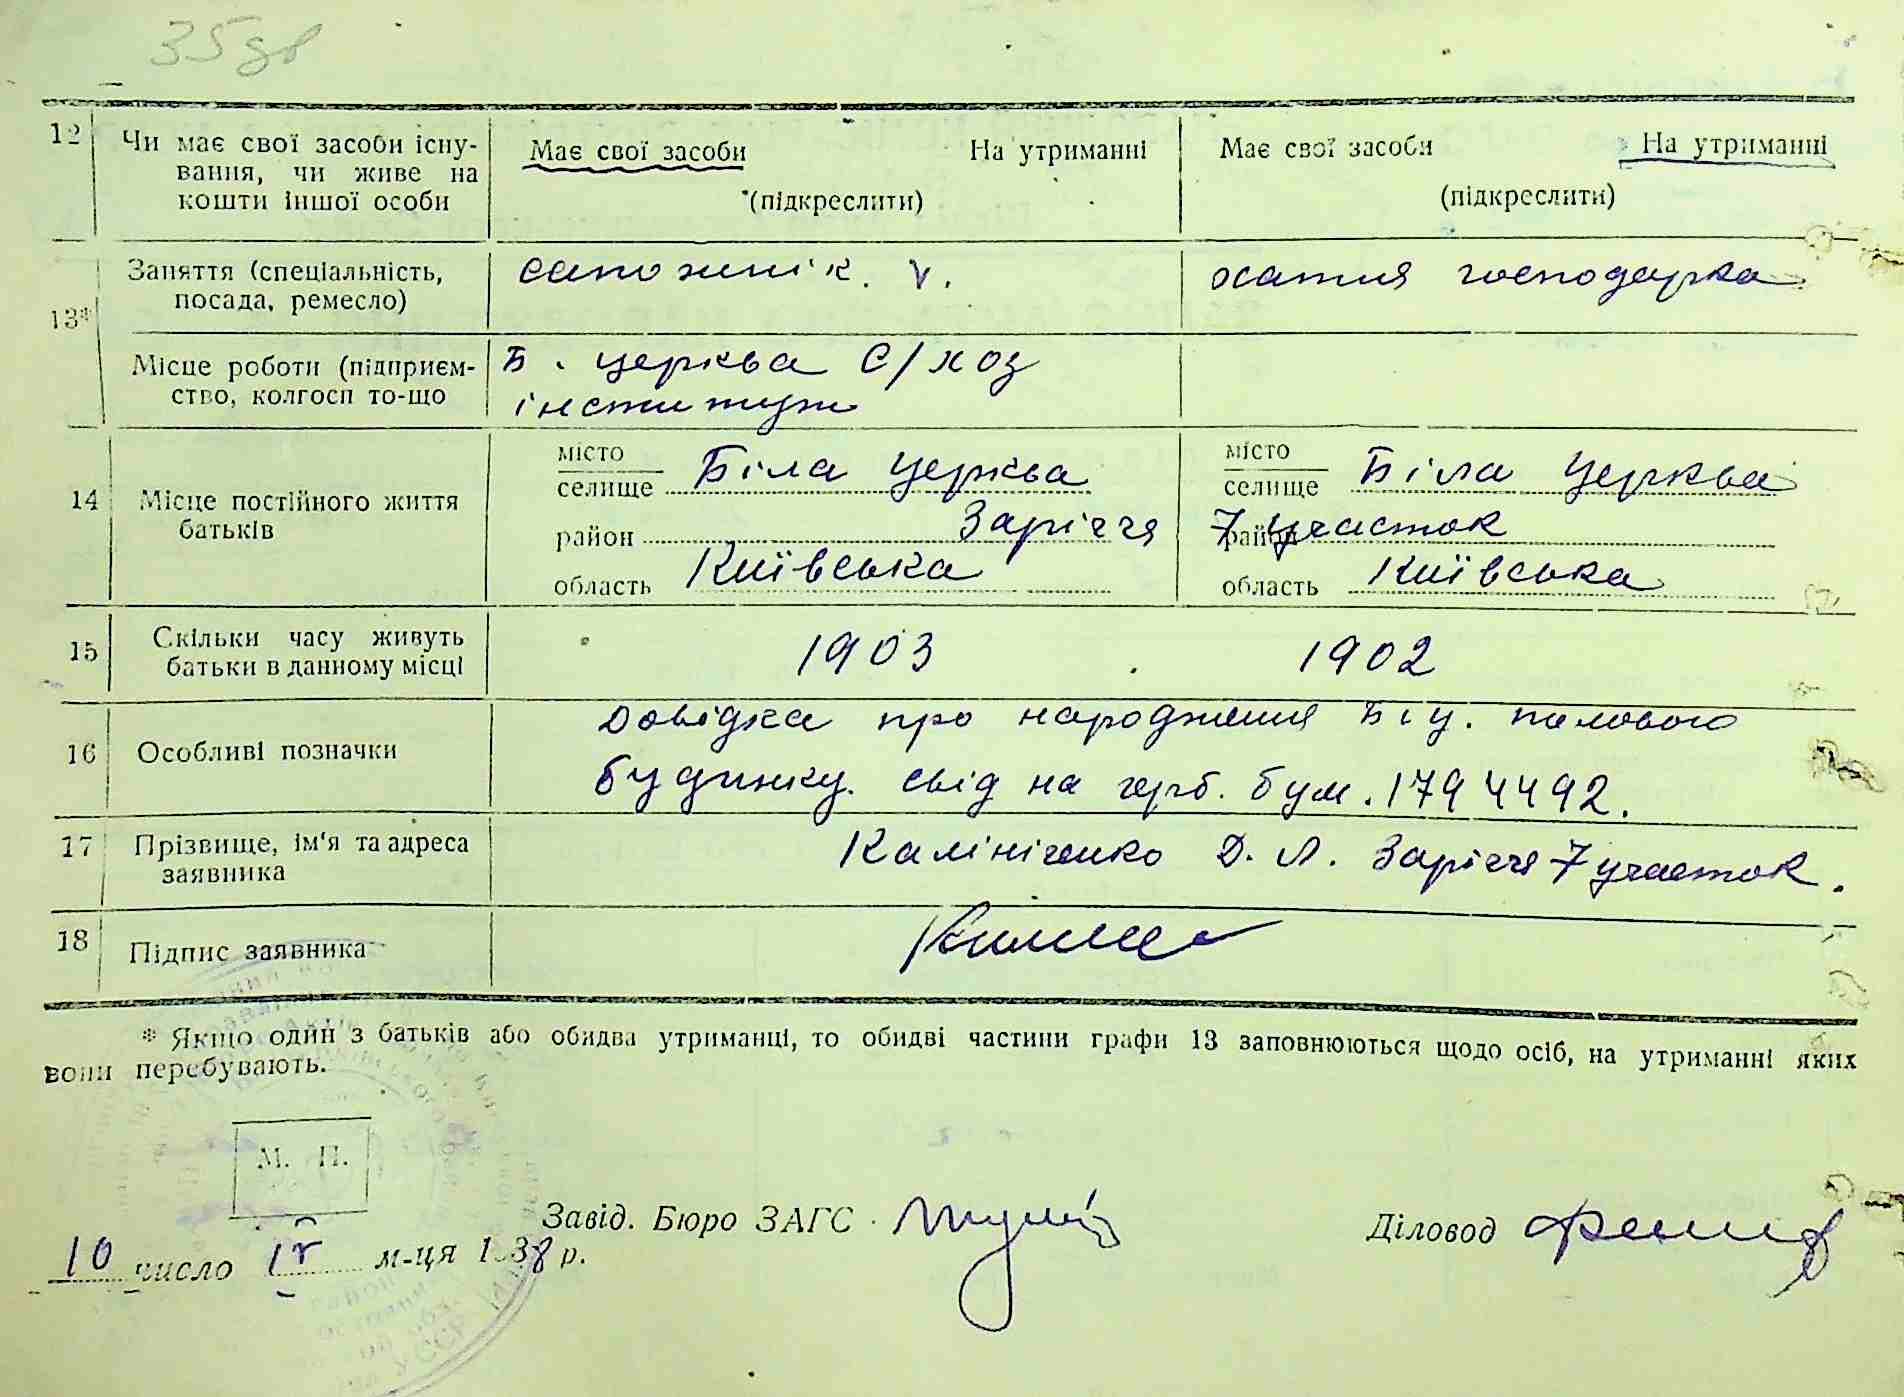 35зв
12 Чи має свої засоби існу-
вання, чи живе на
кошти іншої особи
Має свої засоби На утриманні
(підкреслити)
Має свої засоби На утриманні
(підкреслити)
13* Заняття (спеціальність,
посада, ремесло)
сапожнік. v.
хатня господарка
Місце роботи (підприєм-
ство, колгосп то-що
Б. церква С/хоз
інститут
14 Місце постійного життя
батьків
місто
селище Біла Церква
район Заріччя
область Київська
місто
селище Біла Церква
район 7 участок
область Київська
15 Скільки часу живуть
батьки в данному місці
1903
1902
16 Особливі позначки
Довідка про народження Б і ц. палового
будинку. свід на герб. бум. 1794492.
17 Прізвище, ім'я та адреса
заявника
Калініченко Д. Л. Заріччя 7 участок.
18 Підпис заявника
* Якщо один з батьків або обидва утриманці, то обидві частини графи 13 заповнюються щодо осіб, на утриманні яких
вони перебувають.
М. П.
Завід. Бюро ЗАГС
Діловод
10 число м-ця 1938 р.